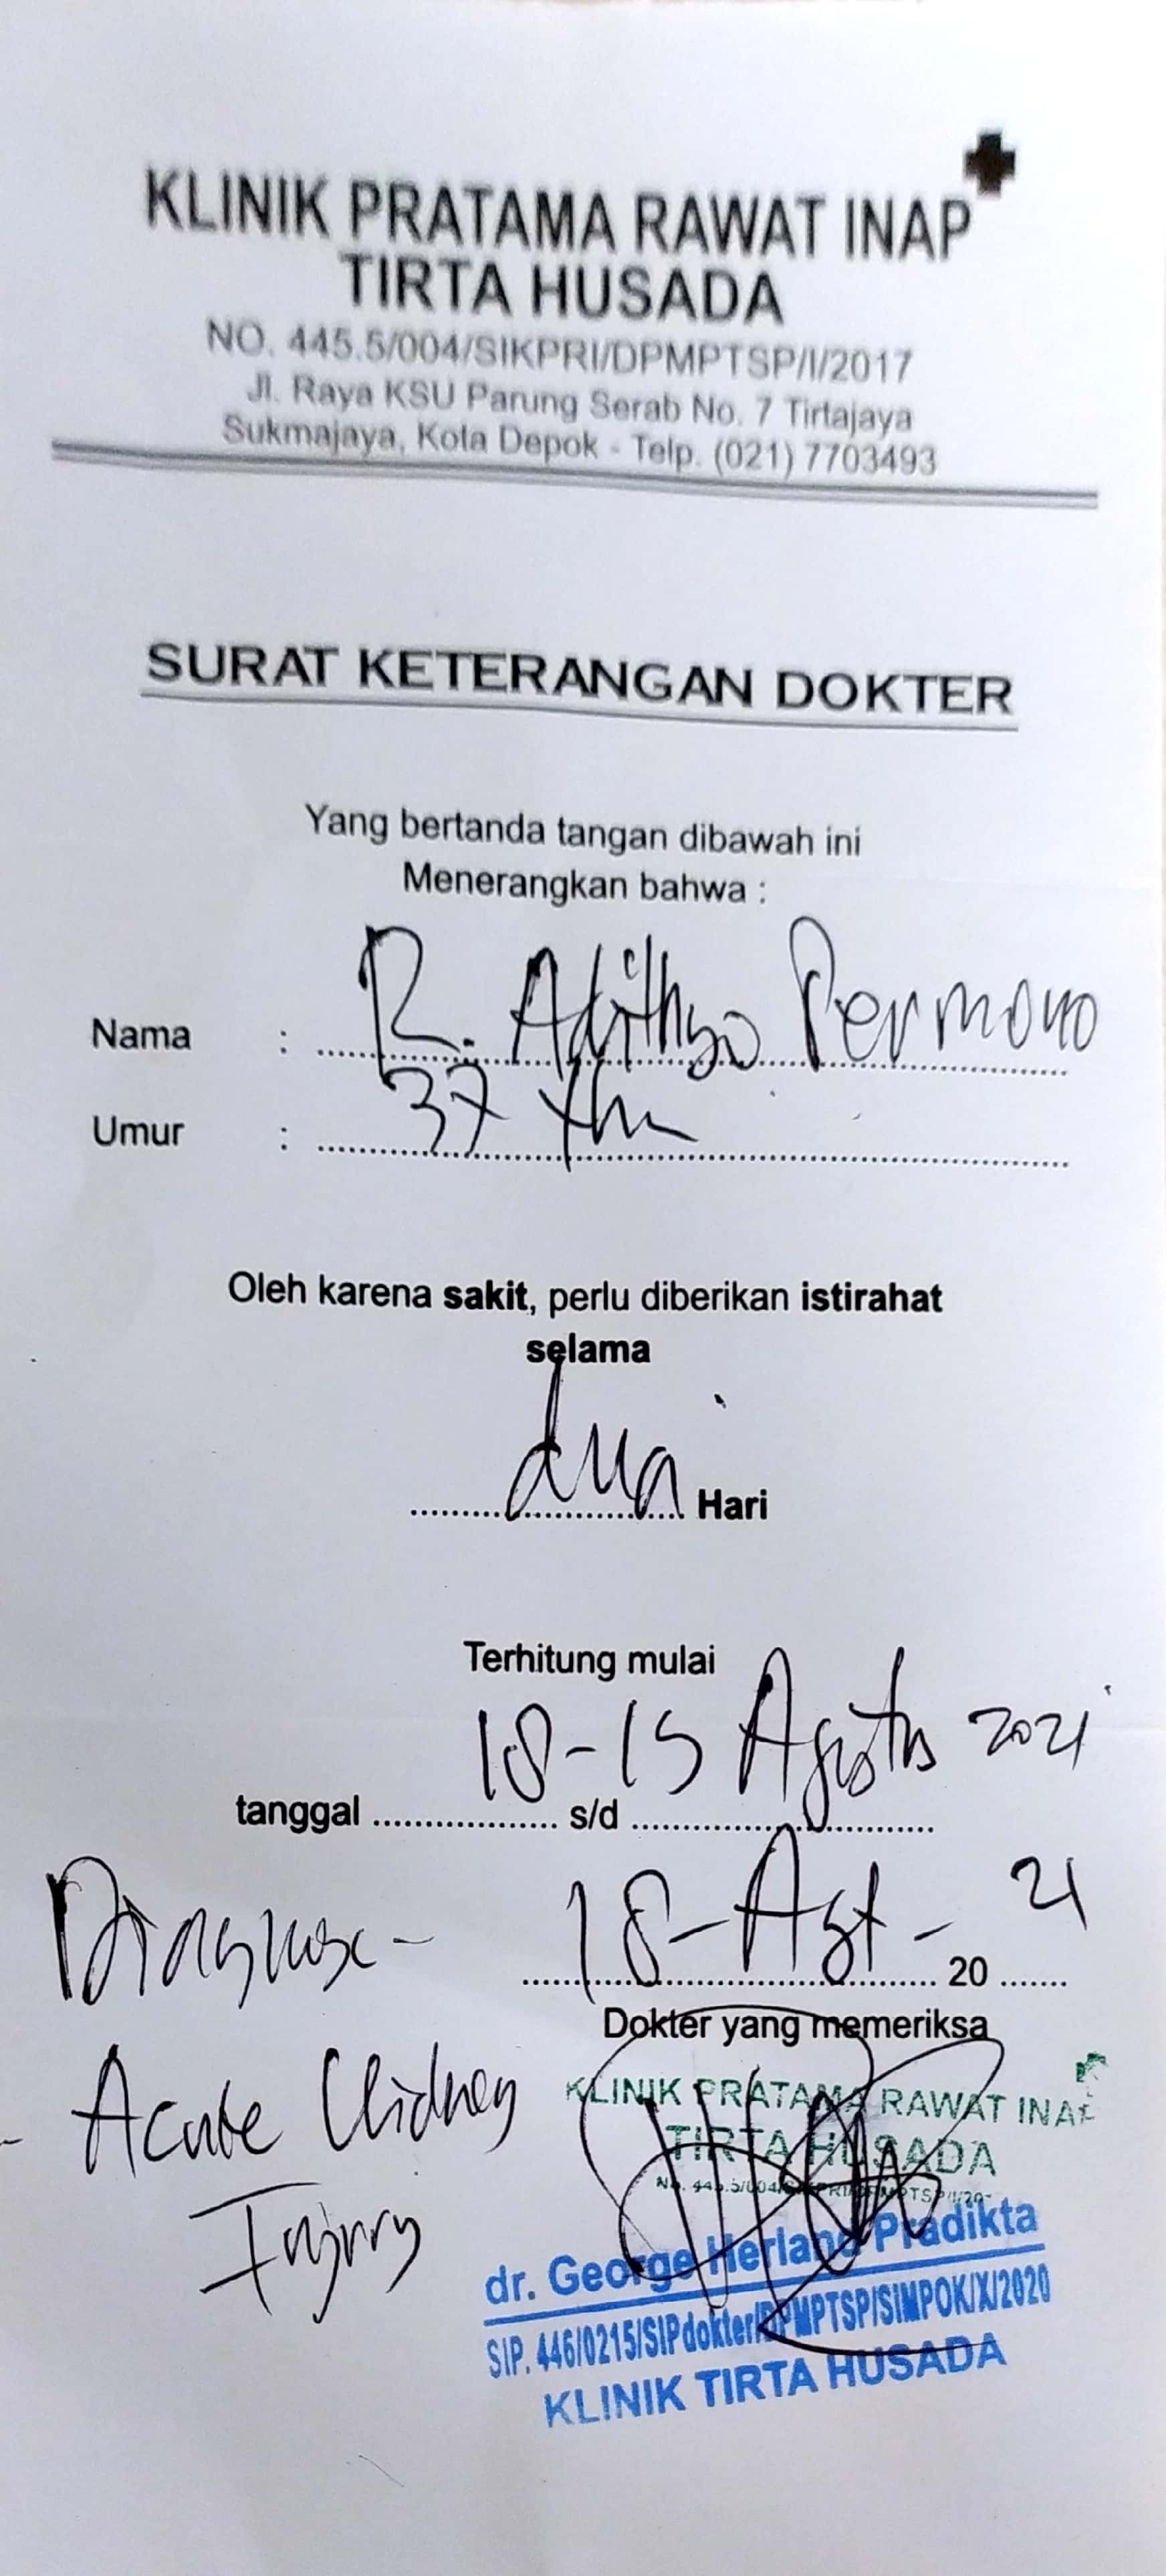 KLINIK PRATAMA RAWAT INAP
TIRTA HUSADA
NO. 445.5/004/SIKPRI/DPMPTSP/I/2017
Jl. Raya KSU Parung Serab No. 7 Tirtajaya
Sukmajaya, Kota Depok - Telp. (021) 7703493
SURAT KETERANGAN DOKTER
Yang bertanda tangan dibawah ini
Menerangkan bahwa :
Nama : R. Adithyo Permono
Umur : 37 thn
Oleh karena sakit, perlu diberikan istirahat
selama
dua Hari
Terhitung mulai
18-19 Agustus 2021
tanggal .................. s/d ..............................
Diagnosa - 18-Agt- 20 21
Dokter yang memeriksa
- Acute Kidney
Injury
KLINIK PRATAMA RAWAT INAP
TIRTA HUSADA
dr. George Herland Pradikta
SIP. 446/0215/SIPdokter/DPMPTSP/SIMPOK/X/2020
KLINIK TIRTA HUSADA